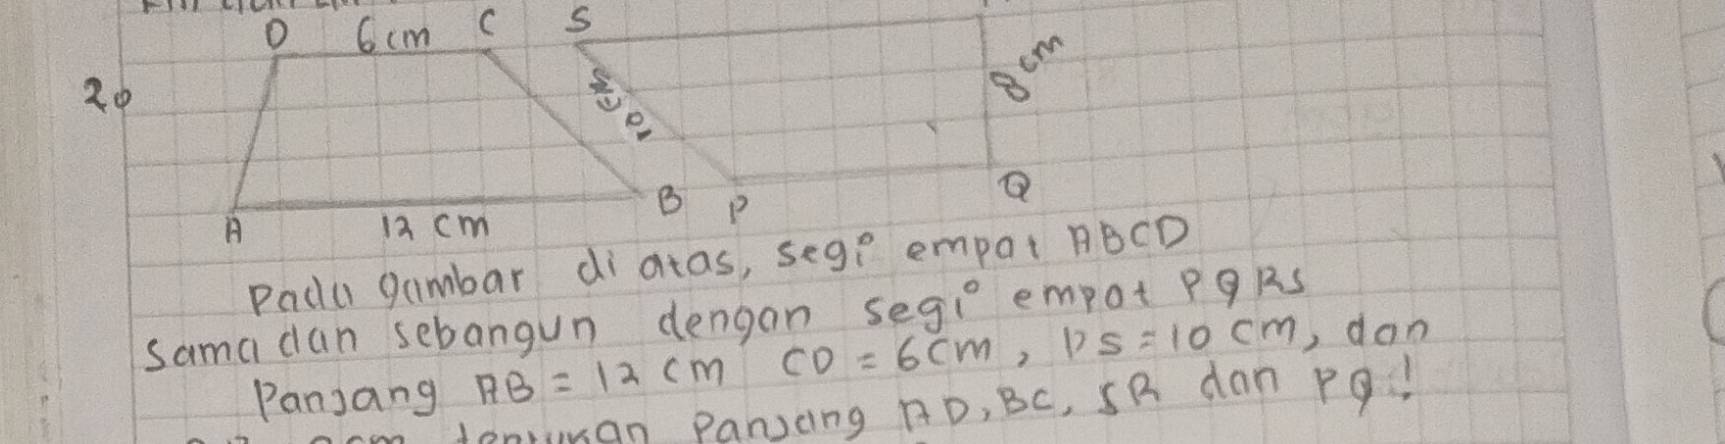 D 6 cm C S
20
10 cm
8 cm
A 12 cm B P Q
Pada gambar di atas, segi empat ABCD
sama dan sebangun dengan segi empat PQRS
Panjang AB = 12 cm CD = 6 cm, PS = 10 cm, dan
tentukan Panjang AD, BC, SR dan PQ!